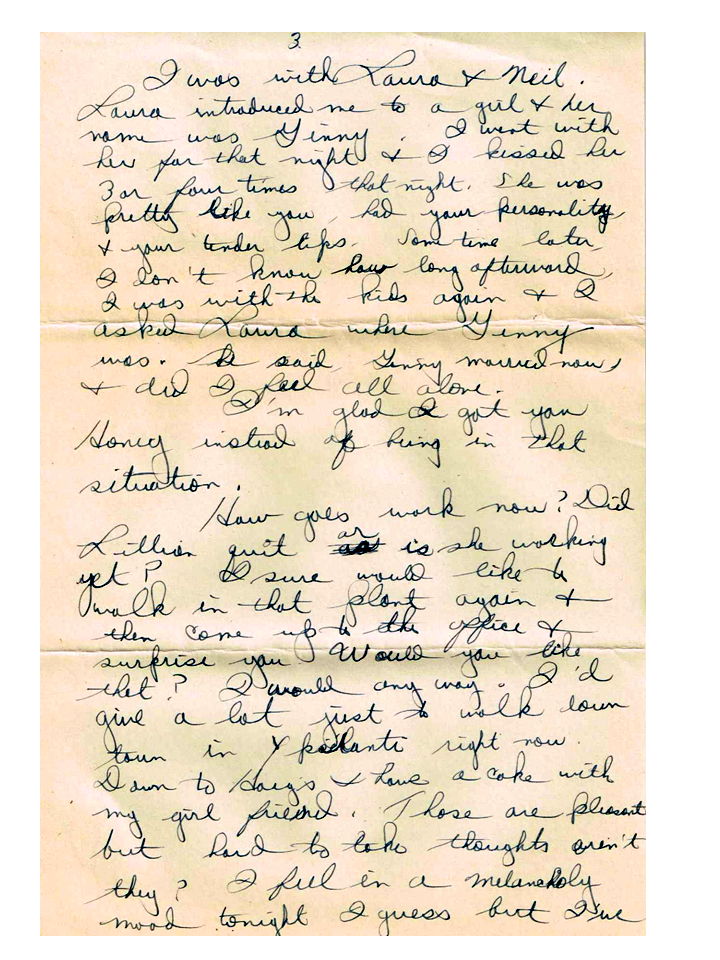 3.
I was with Laura & Neil.
Laura introduced me to a girl & her
name was Ginny. I went with
her for that night & I kissed her
3 or four times that night. She was
pretty like you, had your personality,
& your tender lips. Some time later,
I don't know how long afterward,
I was with the kids again & I
asked Laura where Ginny
was. He said, Ginny married now,
& did I feel all alone.
I'm glad I got you
Honey instead of being in that
situation.
How goes work now? Did
Lillian quit or is she working
yet? I sure would like to
walk in that plant again &
then come up to the office &
surprise you. Would you like
that? I would any way. I'd
give a lot just to walk down
town in Ypsilanti right now.
Down to Haigs & have a coke with
my girl friend. Those are pleasant
but hard to take thoughts aren't
they? I feel in a melancholy
mood tonight I guess but I've